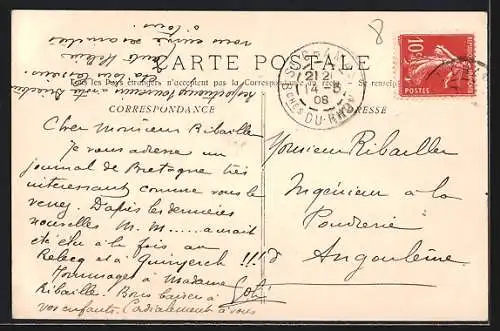 8
CARTE POSTALE
Tous les Pays étrangers n'acceptent pas la Correspondance
Se renseigner
CORRESPONDANCE
ADRESSE
10c
POSTES
21 21
14 - 5
08
BCHES DU-RHÔNE
Cher Monsieur Ribailler
Je vous adresse un
journal de Bretagne très
intéressant comme vous le
verrez. D'après les dernières
nouvelles M. M...... aurait
été élu à la fois au
Relecq et à Quimerch !!!
Hommages à Madame
Ribailler. Bons baisers à
vos enfants. Cordialement à vous
Monsieur Ribailler
Ingénieur à la
Poudrerie
d'Angoulême
vous envoie ses amitiés
à tous.